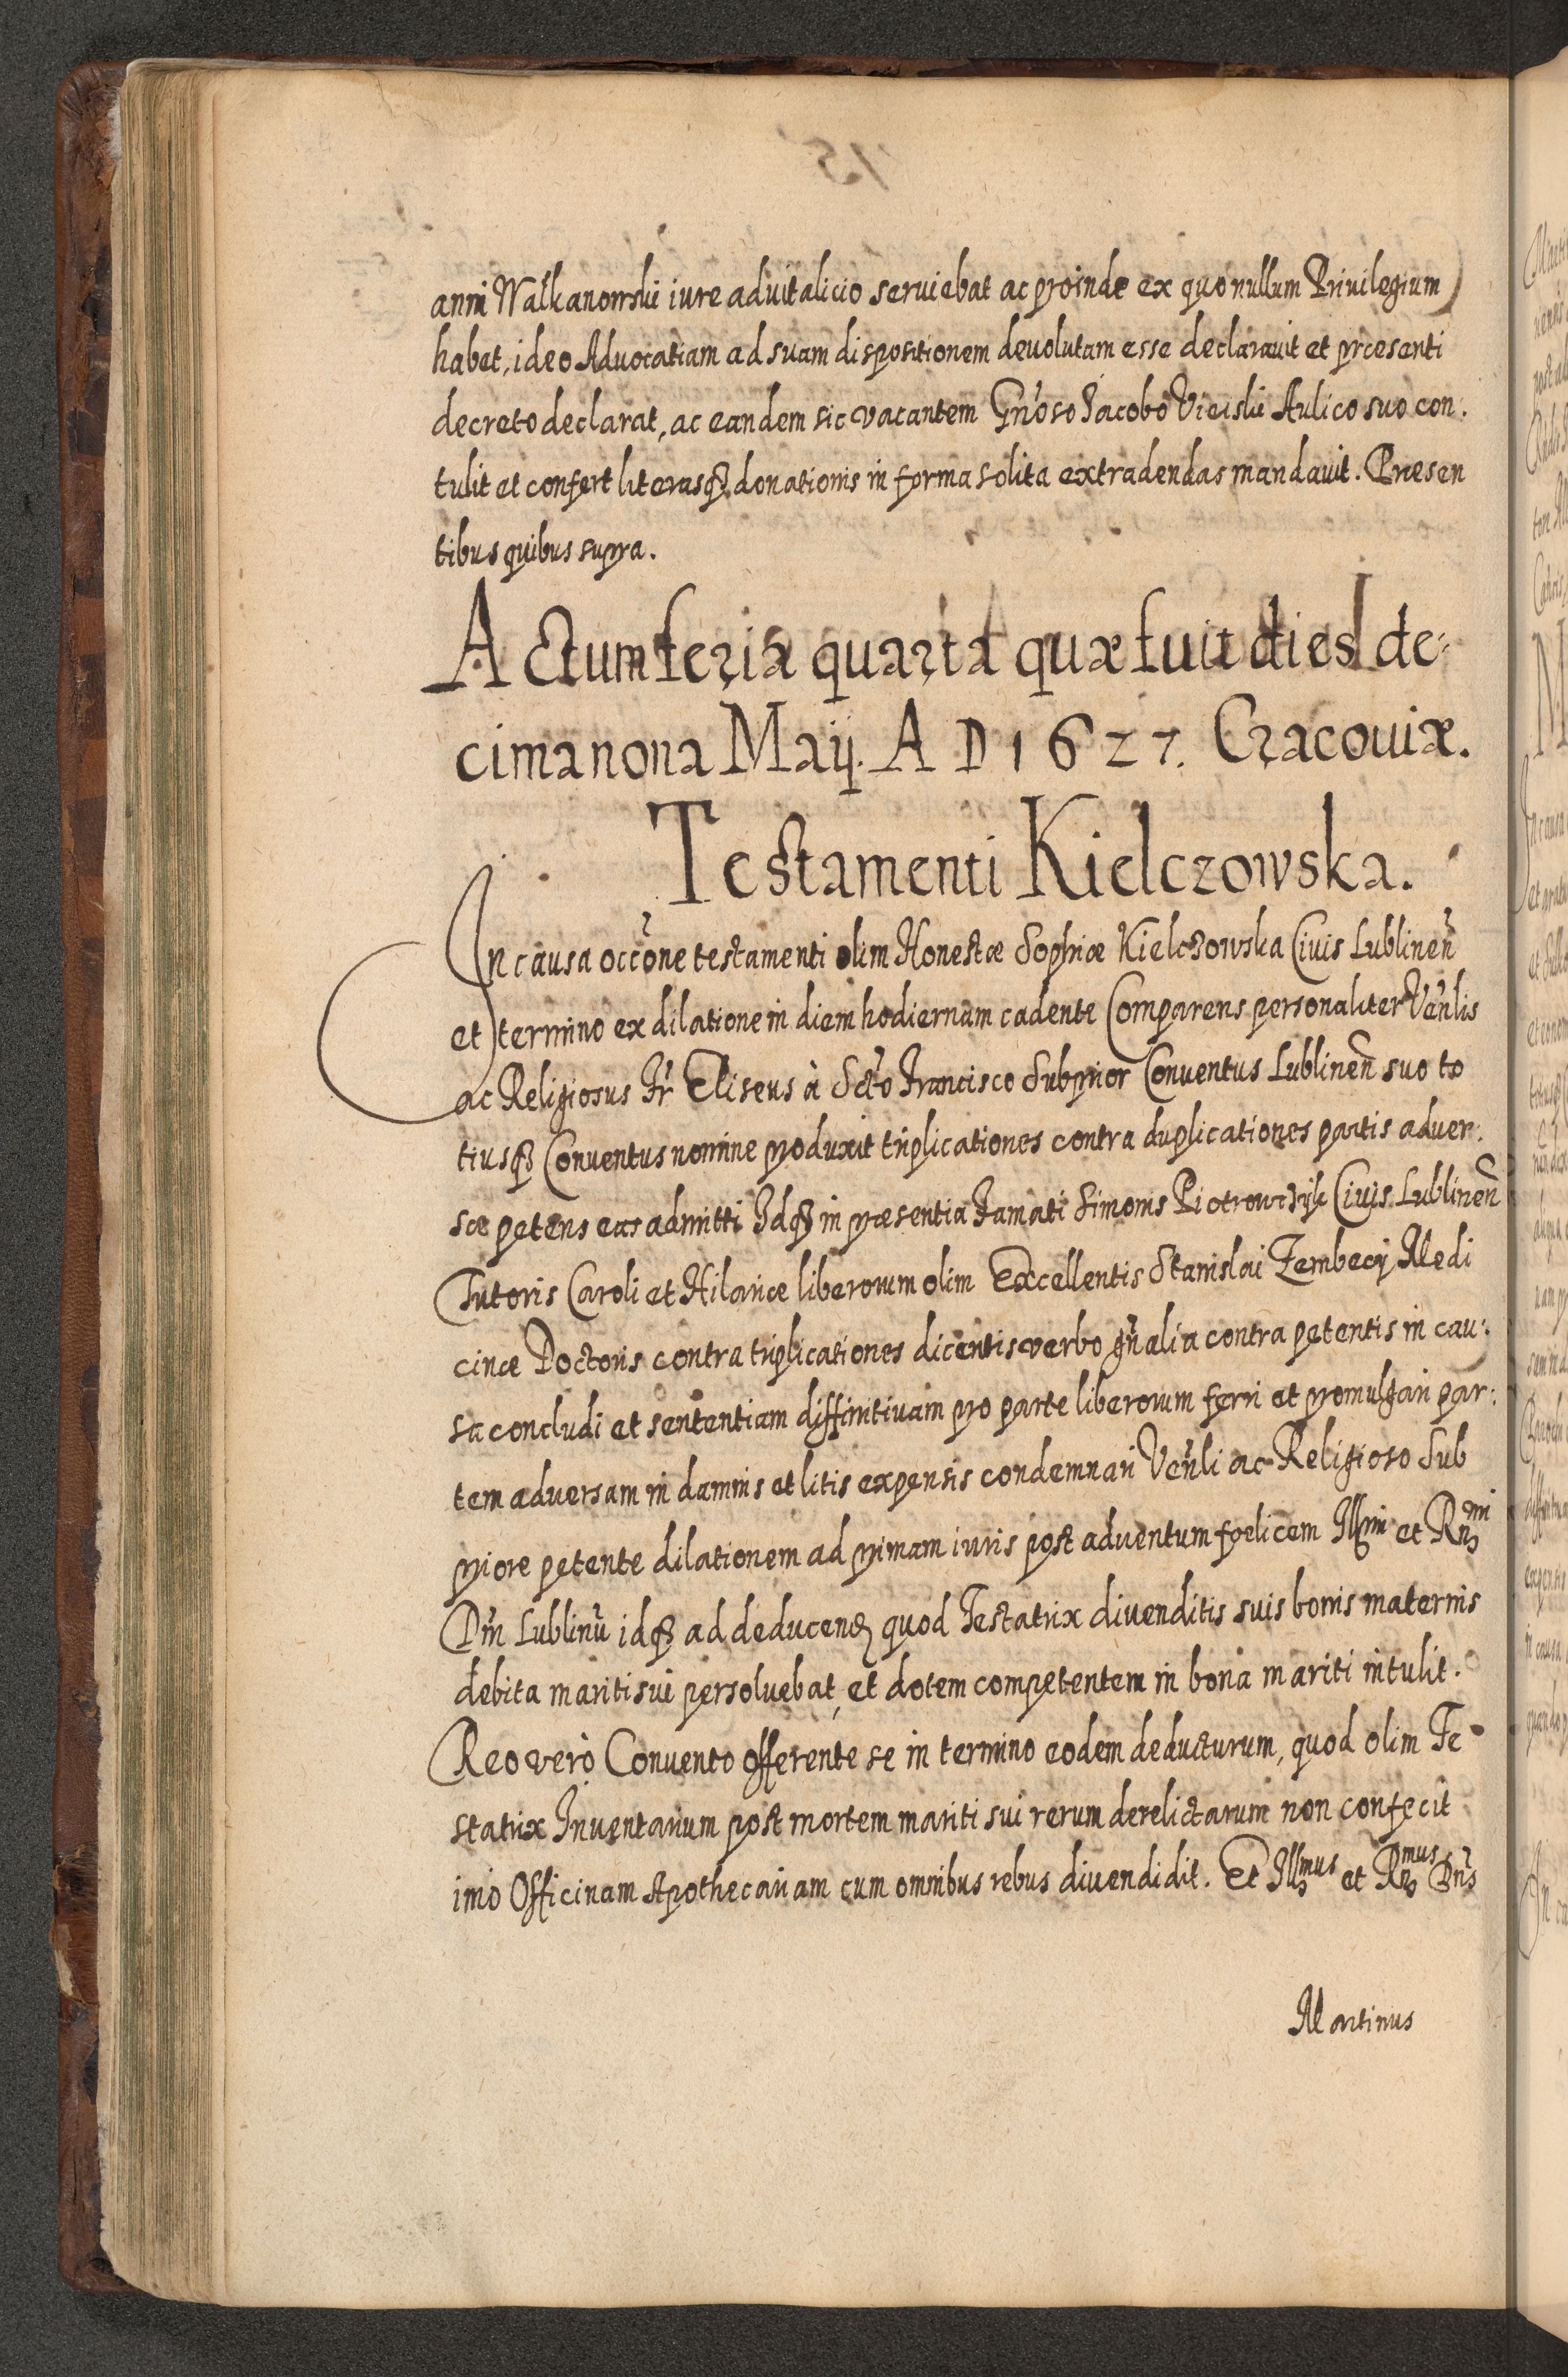 anni Walkanowski iure aduitalicio seruiebat ac proinde ex quo nullum Priuilegium
habet, ideo Aduocatiam ad suam dispositionem deuolutam esse declarauit et præsenti
decreto declarat, ac eandem sic vacantem Gn̄oso Jacobo Vieiski Aulico suo con:
tulit et confert literasq₃ donationis in forma solita extradendas mandauit. Præsen
tibus quibus supra.
Actum feria quarta quæ fuit dies de:
cima nona Maij. A D 1627. Cracouiæ.
Testamenti Kielczowska.
In causa occōne testamenti olim Honestæ Sophiæ Kielczowska Ciuis Lublineñ
et termino ex dilatione in diem hodiernam cadente Comparens personaliter Veñlis
ac Religiosus Fr̄ Eliseus à Scto Francisco Subprior Conuentus Lublineñ suo to
tiusq₃ Conuentus nomine produxit triplicationes contra duplicationes partis aduer:
sæ petens eas admitti Idq₃ in præsentia Famati Simonis Piotrowczijk Ciuis Lublineñ
Tutoris Caroli et Hilariæ liberorum olim Excellentis Stanislai Zembecij Medi
cinæ Doctoris contra triplicationes dicentis verbo gñalia contra petentis in cau:
sa concludi et sententiam diffinitiuam pro parte liberorum ferri et promulgari par:
tem aduersam in damnis et litis expensis condemnari Veñli ac Religioso Sub
priore petente dilationem ad primam iuris post aduentum foelicem Illmi et Rn₃mi
Dñi Lublinū idq₃ ad deducend₃ quod Testatrix diuenditis suis bonis maternis
debita mariti sui persoluebat, et dotem competentem in bona mariti intulit.
Reo verò Conuento offerente se in termino eodem deducturum, quod olim Te
statrix Inuentarium post mortem mariti sui rerum derelictarum non confecit
imo Officinam Apothecariam cum omnibus rebus diuendidit. Et Ill₃mus et Rn₃mus Dñs
Martinus